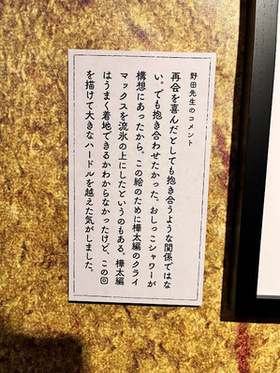 野田先生のコメント
再会を喜んだとしても抱き合うような関係ではな
い。でも抱き合わせたかった。おしっこシャワーが
構想にあったから。この絵のために樺太編のクライ
マックスを流氷の上にしたというのもある。樺太編
はうまく着地できるかわからなかったけど、この回
を描けて大きなハードルを越えた気がしました。